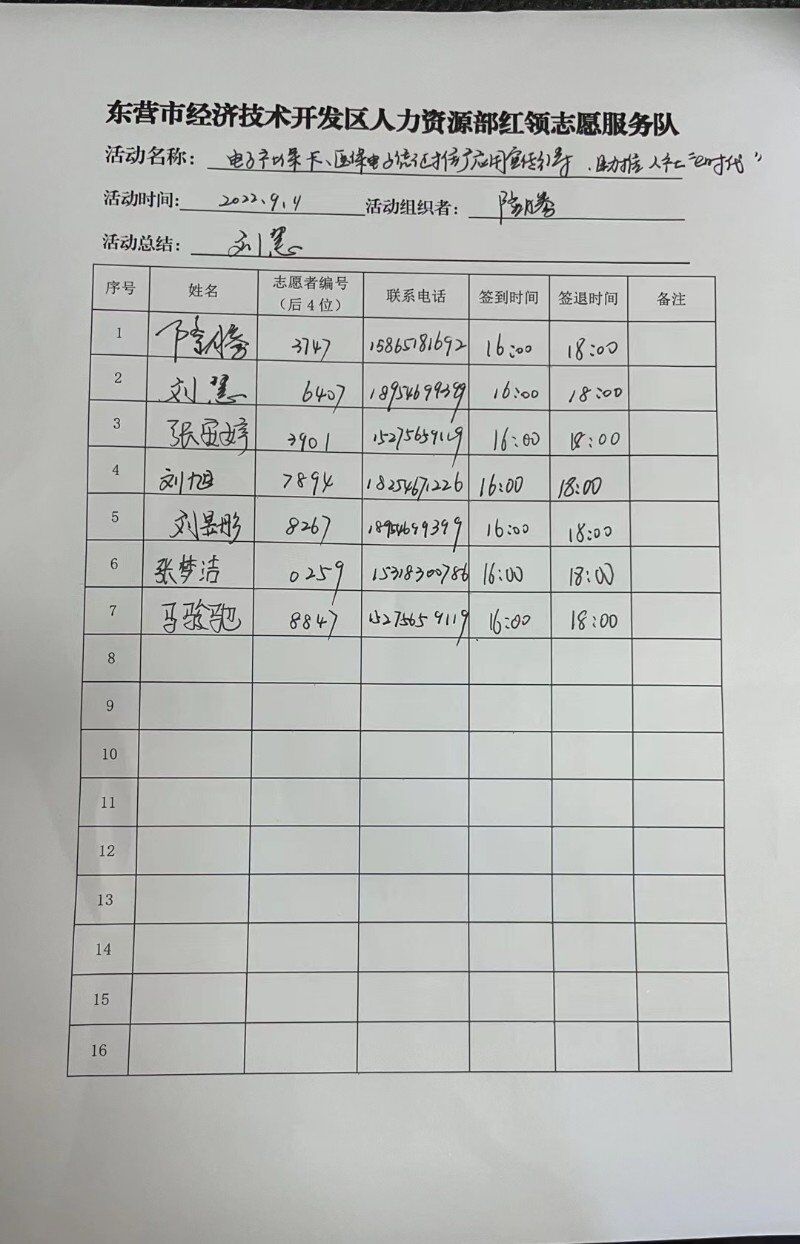 东营市经济技术开发区人力资源部红领志愿服务队
活动名称: 电子社保卡、医保电子凭证推广应用宣传引导、助力推人社"e时代"
活动时间: 2022.9.4 活动组织者: 隋腾
活动总结: 刘慧
序号 姓名 志愿者编号（后4位） 联系电话 签到时间 签退时间 备注
1 隋腾 3747 15865181692 16:00 18:00
2 刘慧 6407 18954699399 16:00 18:00
3 张亚婷 3901 15275659119 16:00 18:00
4 刘旭 7894 18254671226 16:00 18:00
5 刘昱彤 8267 18954699399 16:00 18:00
6 张梦洁 0259 15318300786 16:00 18:00
7 马骏驰 8847 15275659119 16:00 18:00
8
9
10
11
12
13
14
15
16